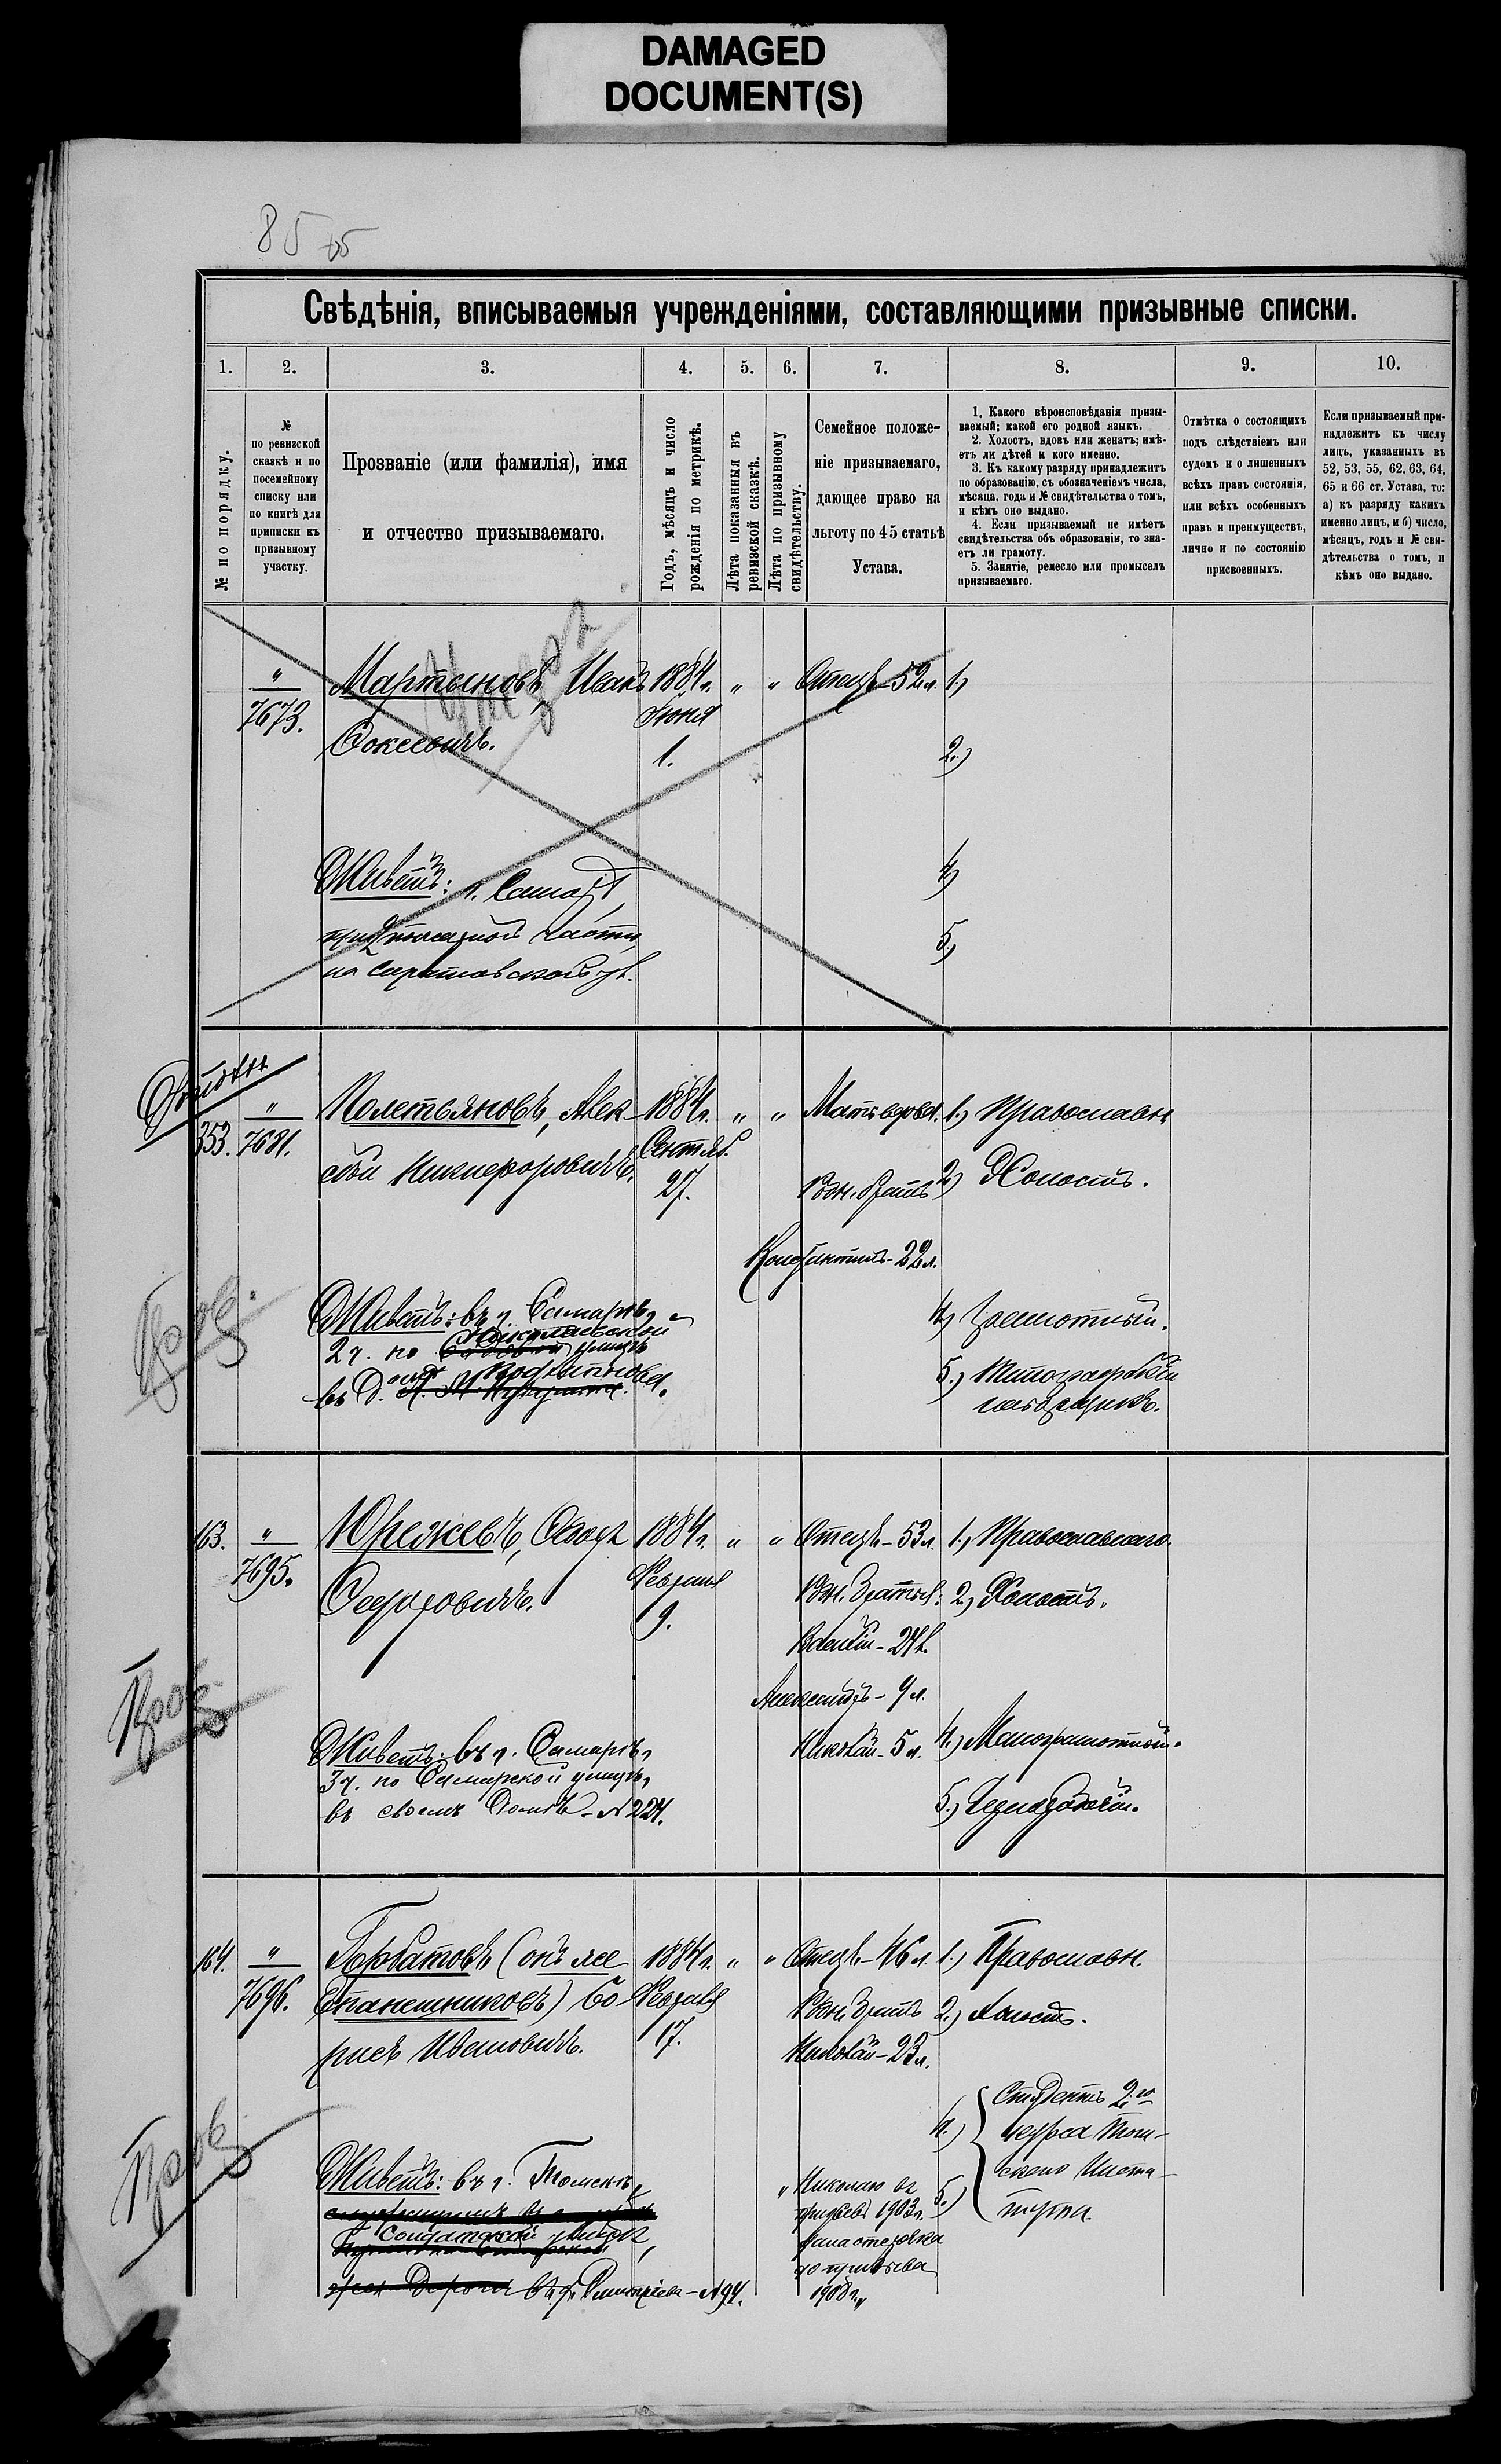 DAMAGED
DOCUMENT(S)
85
Свѣдѣнія, вписываемыя учрежденіями, составляющими призывные списки.
1. 2. 3. 4. 5. 6. 7. 8. 9. 10.
№ по порядку.
№
по ревизской
сказкѣ и по
посемейному
списку или
по книгѣ для
приписки къ
призывному
участку.
Прозваніе (или фамилія), имя
и отчество призываемаго.
Годъ, мѣсяцъ и число
рожденія по метрикѣ.
Лѣта показанныя въ
ревизской сказкѣ.
Лѣта по призывному
свидѣтельству.
Семейное положе-
ніе призываемаго,
дающее право на
льготу по 45 статьѣ
Устава.
1. Какого вѣроисповѣданія призы-
ваемый; какой его родной языкъ.
2. Холостъ, вдовъ или женатъ; имѣ-
етъ ли дѣтей и кого именно.
3. Къ какому разряду принадлежитъ
по образованію, съ обозначеніемъ числа,
мѣсяца, года и № свидѣтельства о томъ,
и кѣмъ оно выдано.
4. Если призываемый не имѣетъ
свидѣтельства объ образованіи, то зна-
етъ ли грамоту.
5. Занятіе, ремесло или промыселъ
призываемаго.
Отмѣтка о состоящихъ
подъ слѣдствіемъ или
судомъ и о лишенныхъ
всѣхъ правъ состоянія,
или всѣхъ особенныхъ
правъ и преимуществъ,
лично и по состоянію
присвоенныхъ.
Если призываемый при-
надлежитъ къ числу
лицъ, указанныхъ въ
52, 53, 55, 62, 63, 64,
65 и 66 ст. Устава, то:
а) къ разряду какихъ
именно лицъ, и б) число,
мѣсяцъ, годъ и № сви-
дѣтельства о томъ, и
кѣмъ оно выдано.
"
7673.
Мартыновъ, Иванъ
Фокеевичъ.
1884 г.
Іюня
1.
" "
Отецъ - 52 л.
1.)
2.)
4.)
5.)
Живетъ:
части,
на Саратовской ул.
353.
"
7681.
Полетьяновъ, Алек-
сѣй Никифоровичъ.
1884 г.
Сентяб.
27.
" "
Мать вдова.
Родн. братъ
Константинъ - 22 л.
1.) Православн.
2.) Холостъ.
4.) Грамотный.
5.)
Живетъ: въ г. Самарѣ,
2 ч. по Николаевской улицѣ
въ д.
163.
"
7695.
Юрежевъ, Ѳедоръ
Ѳедоровичъ.
1884 г.
Февраля
9.
" "
Отецъ - 53 л.
Родн. братья:
Василій - 24 л.
Александръ - 9 л.
Николай - 5 л.
1.) Православнаго.
2.) Холостъ.
4.) Малограмотный.
5.) Чернорабочій.
Живетъ: въ г. Самарѣ,
3 ч. по Самарской улицѣ,
въ своемъ домѣ - № 224.
164.
"
7696.
Горбатовъ (онъ же
Степанешниковъ) Бо-
рисъ Ивановичъ.
1884 г.
Февраля
17.
" "
Отецъ - 46 л.
Родн. братъ
Николай - 23 л.
1.) Православн.
2.) Холостъ.
4.)
5.)
Студентъ 2го
курса Том-
скаго Инсти-
тута
Живетъ: въ г. Томскѣ,
Солдатской улицѣ,
въ д. Дмитріева - № 94.
"Николаю въ
призывъ 1903 г.
дана отсрочка
до призыва
1908 г."